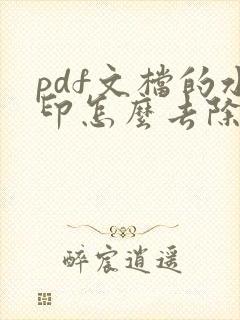 pdf文檔的水
印怎麽去除
醉宸逍遥